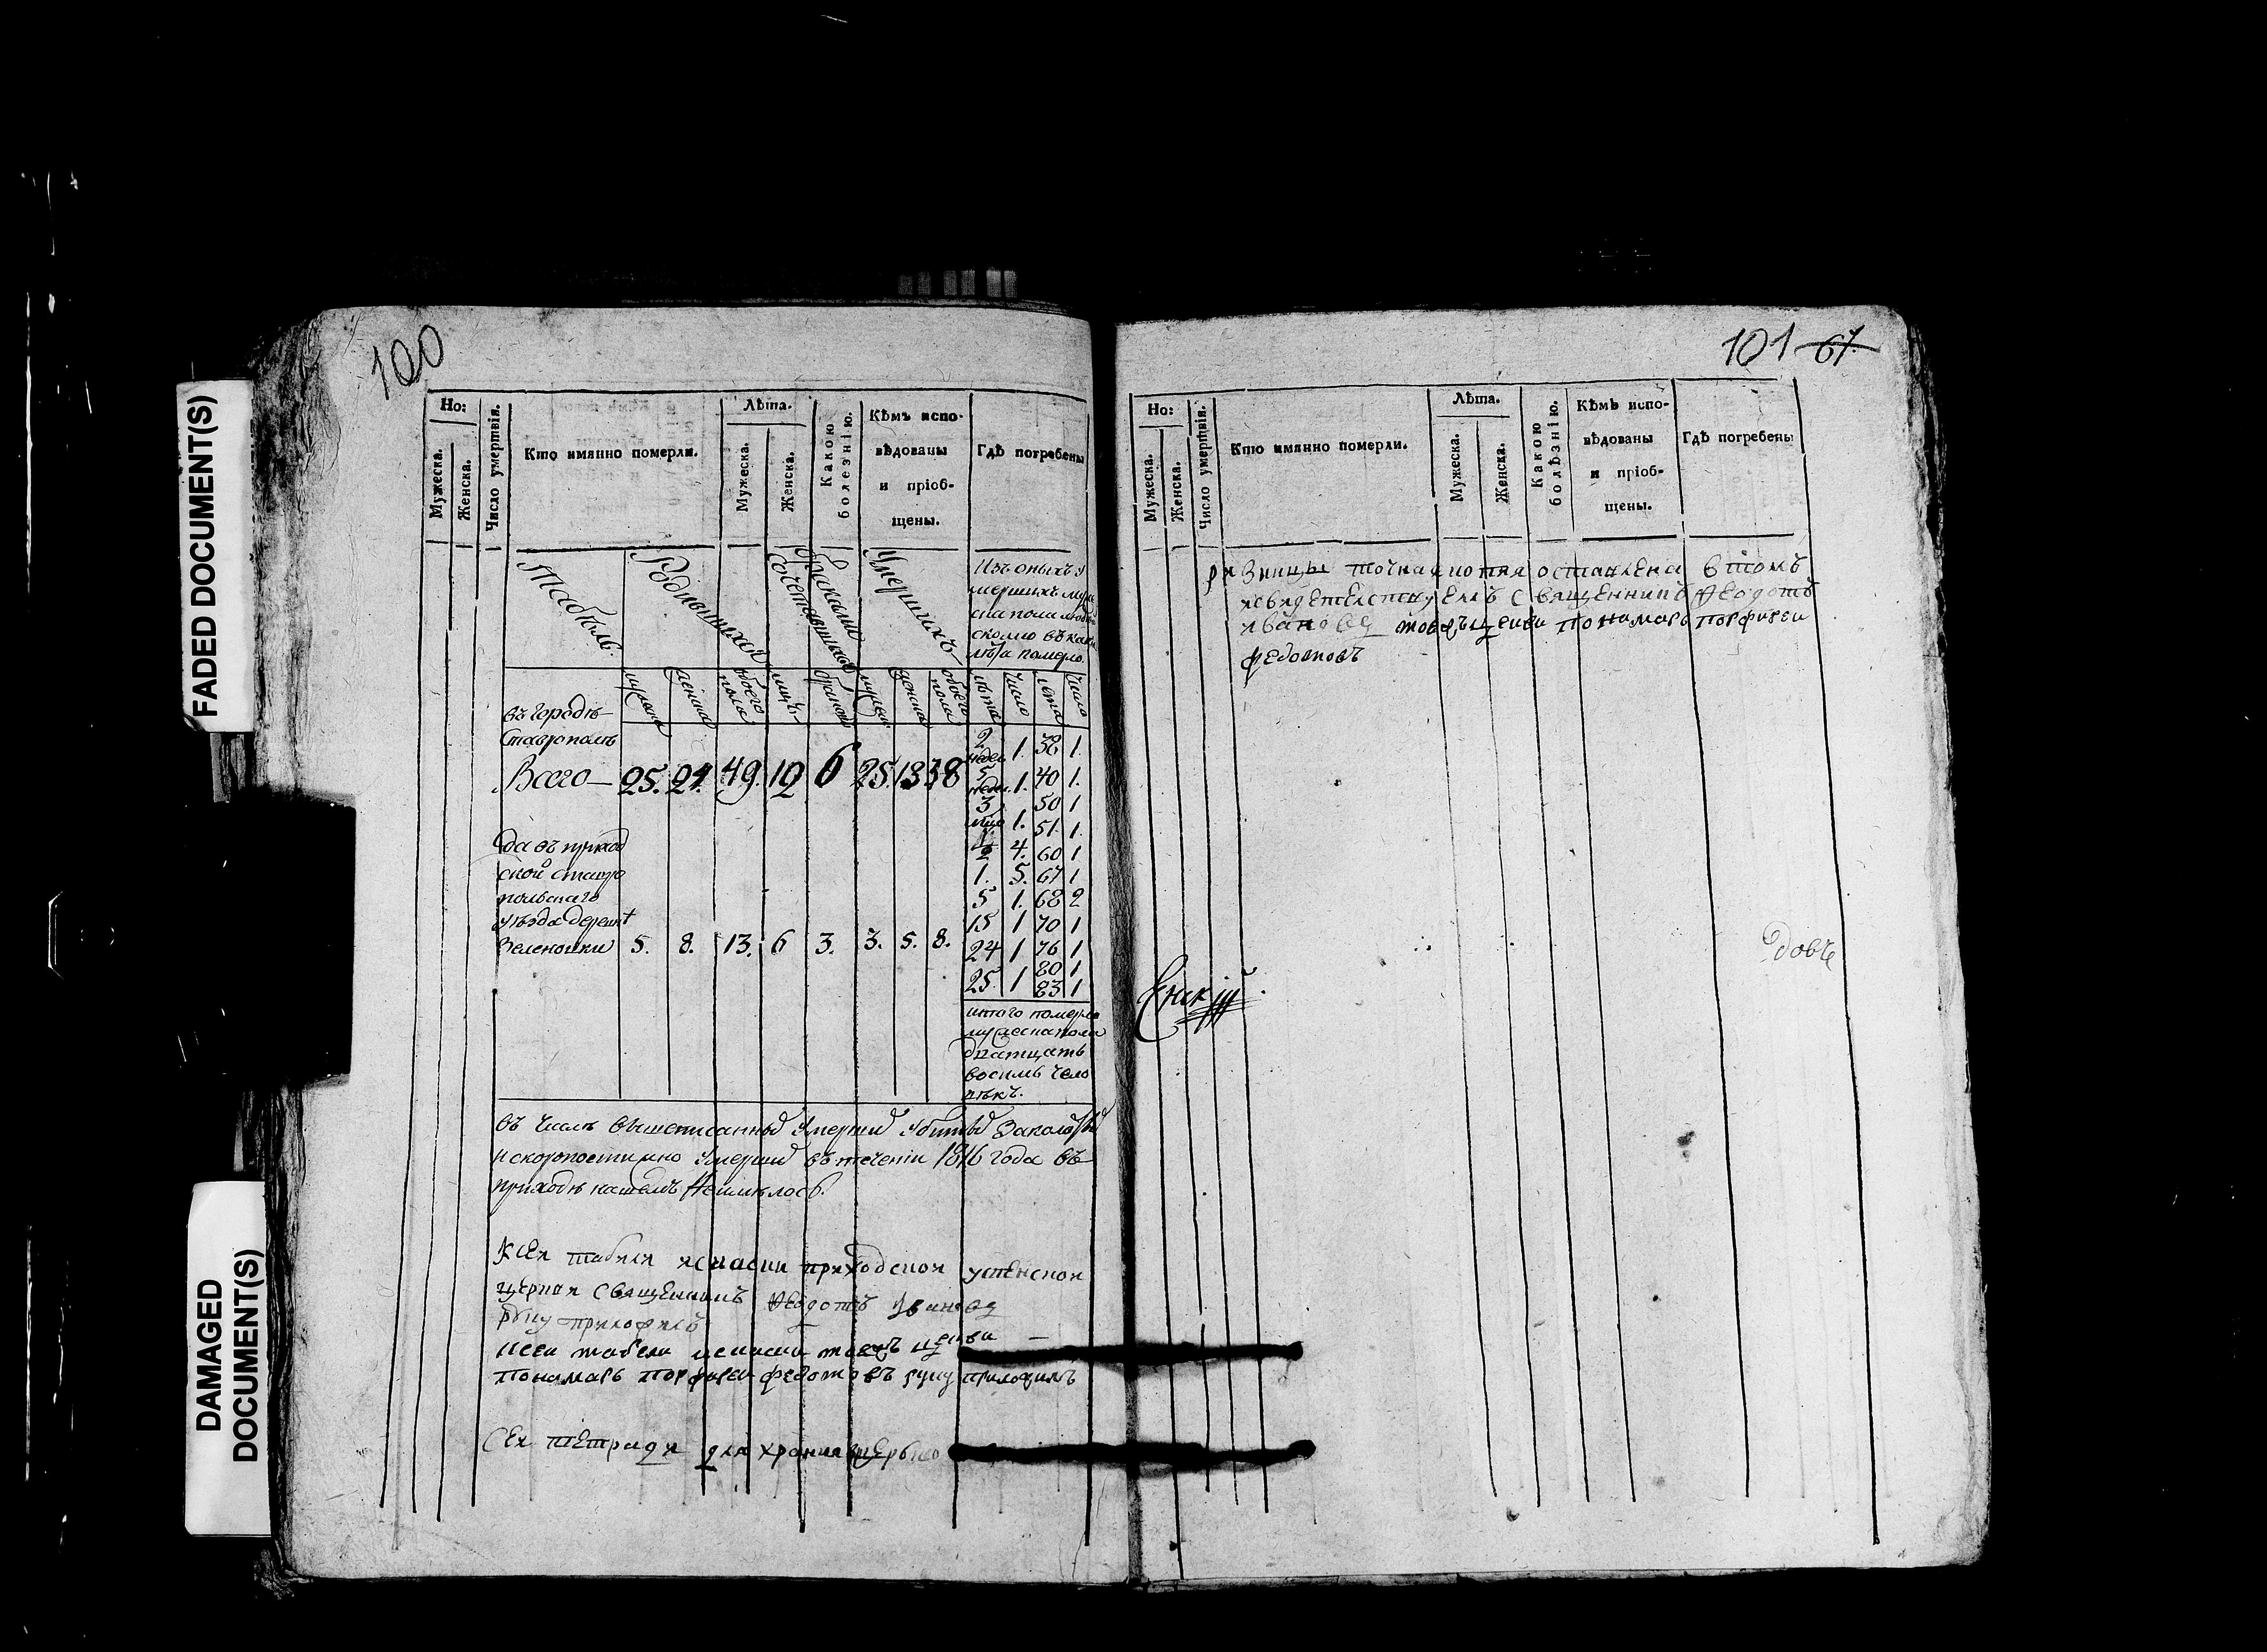 FADED DOCUMENT(S)
DAMAGED
DOCUMENT(S)
100
Но:
Мужеска.
Женска.
Число умертвія.
Кто имянно померли.
Лѣта.
Мужеска.
Женска.
Какою
болезнію.
Кѣмъ испо-
вѣдованы
и пріоб-
щены.
Гдѣ погребены
Табель.
Родившихся
бракомъ
сочетавшихся
Умершихъ
Изъ оныхъ у
мершихъ муже
ска пола
сколко въ какия
лѣта померло.
мужеска
женска
обоего
пола
лицъ
браковъ
мужеск
женска
обоего
пола
лѣта
число
лѣта
число
въ городѣ
Ставрополѣ
Всего 25. 24. 49. 12 6 25. 13 38
2
недел 1. 38 1.
5
недел. 1. 40 1.
3 50 1
1. 51. 1.
1/2 4. 60 1
1. 5. 67 1
5 1. 68 2
15 1 70 1
24 1 76 1
80 1
25. 1 83 1
да въ приход
ской ставро
польскаго
уѣзда деревнѣ
Зеленовки 5. 8. 13. 6 3. 3. 5. 8.
итого померло
мужеска пола
дватцать
восимь чело
вѣкъ.
въ числѣ вышеписанных умерших убитых
и скоропостижно умерших въ теченіи 1816 года въ
приходѣ нашемъ неимѣлось.
Ксеи табели приходскои успенскои
церкви священникъ Федотъ Ивановъ
руку приложилъ
ксеи табели тоежъ церкви
понамарь порфиреи федотовъ руку приложилъ
Сеи тетради для хранения
101 67.
Но:
Мужеска.
Женска.
Число умертвія.
Кто имянно померли.
Лѣта.
Мужеска.
Женска.
Какою
болѣзнію.
Кѣмъ испо-
вѣдованы
и пріоб-
щены.
Гдѣ погребены
ризницы точная копия оставлена втомъ
исвидетелствуемъ священникъ Федотъ
Ивановъ тоежъ церкви понамарь порфиреи
федотовъ
довъ